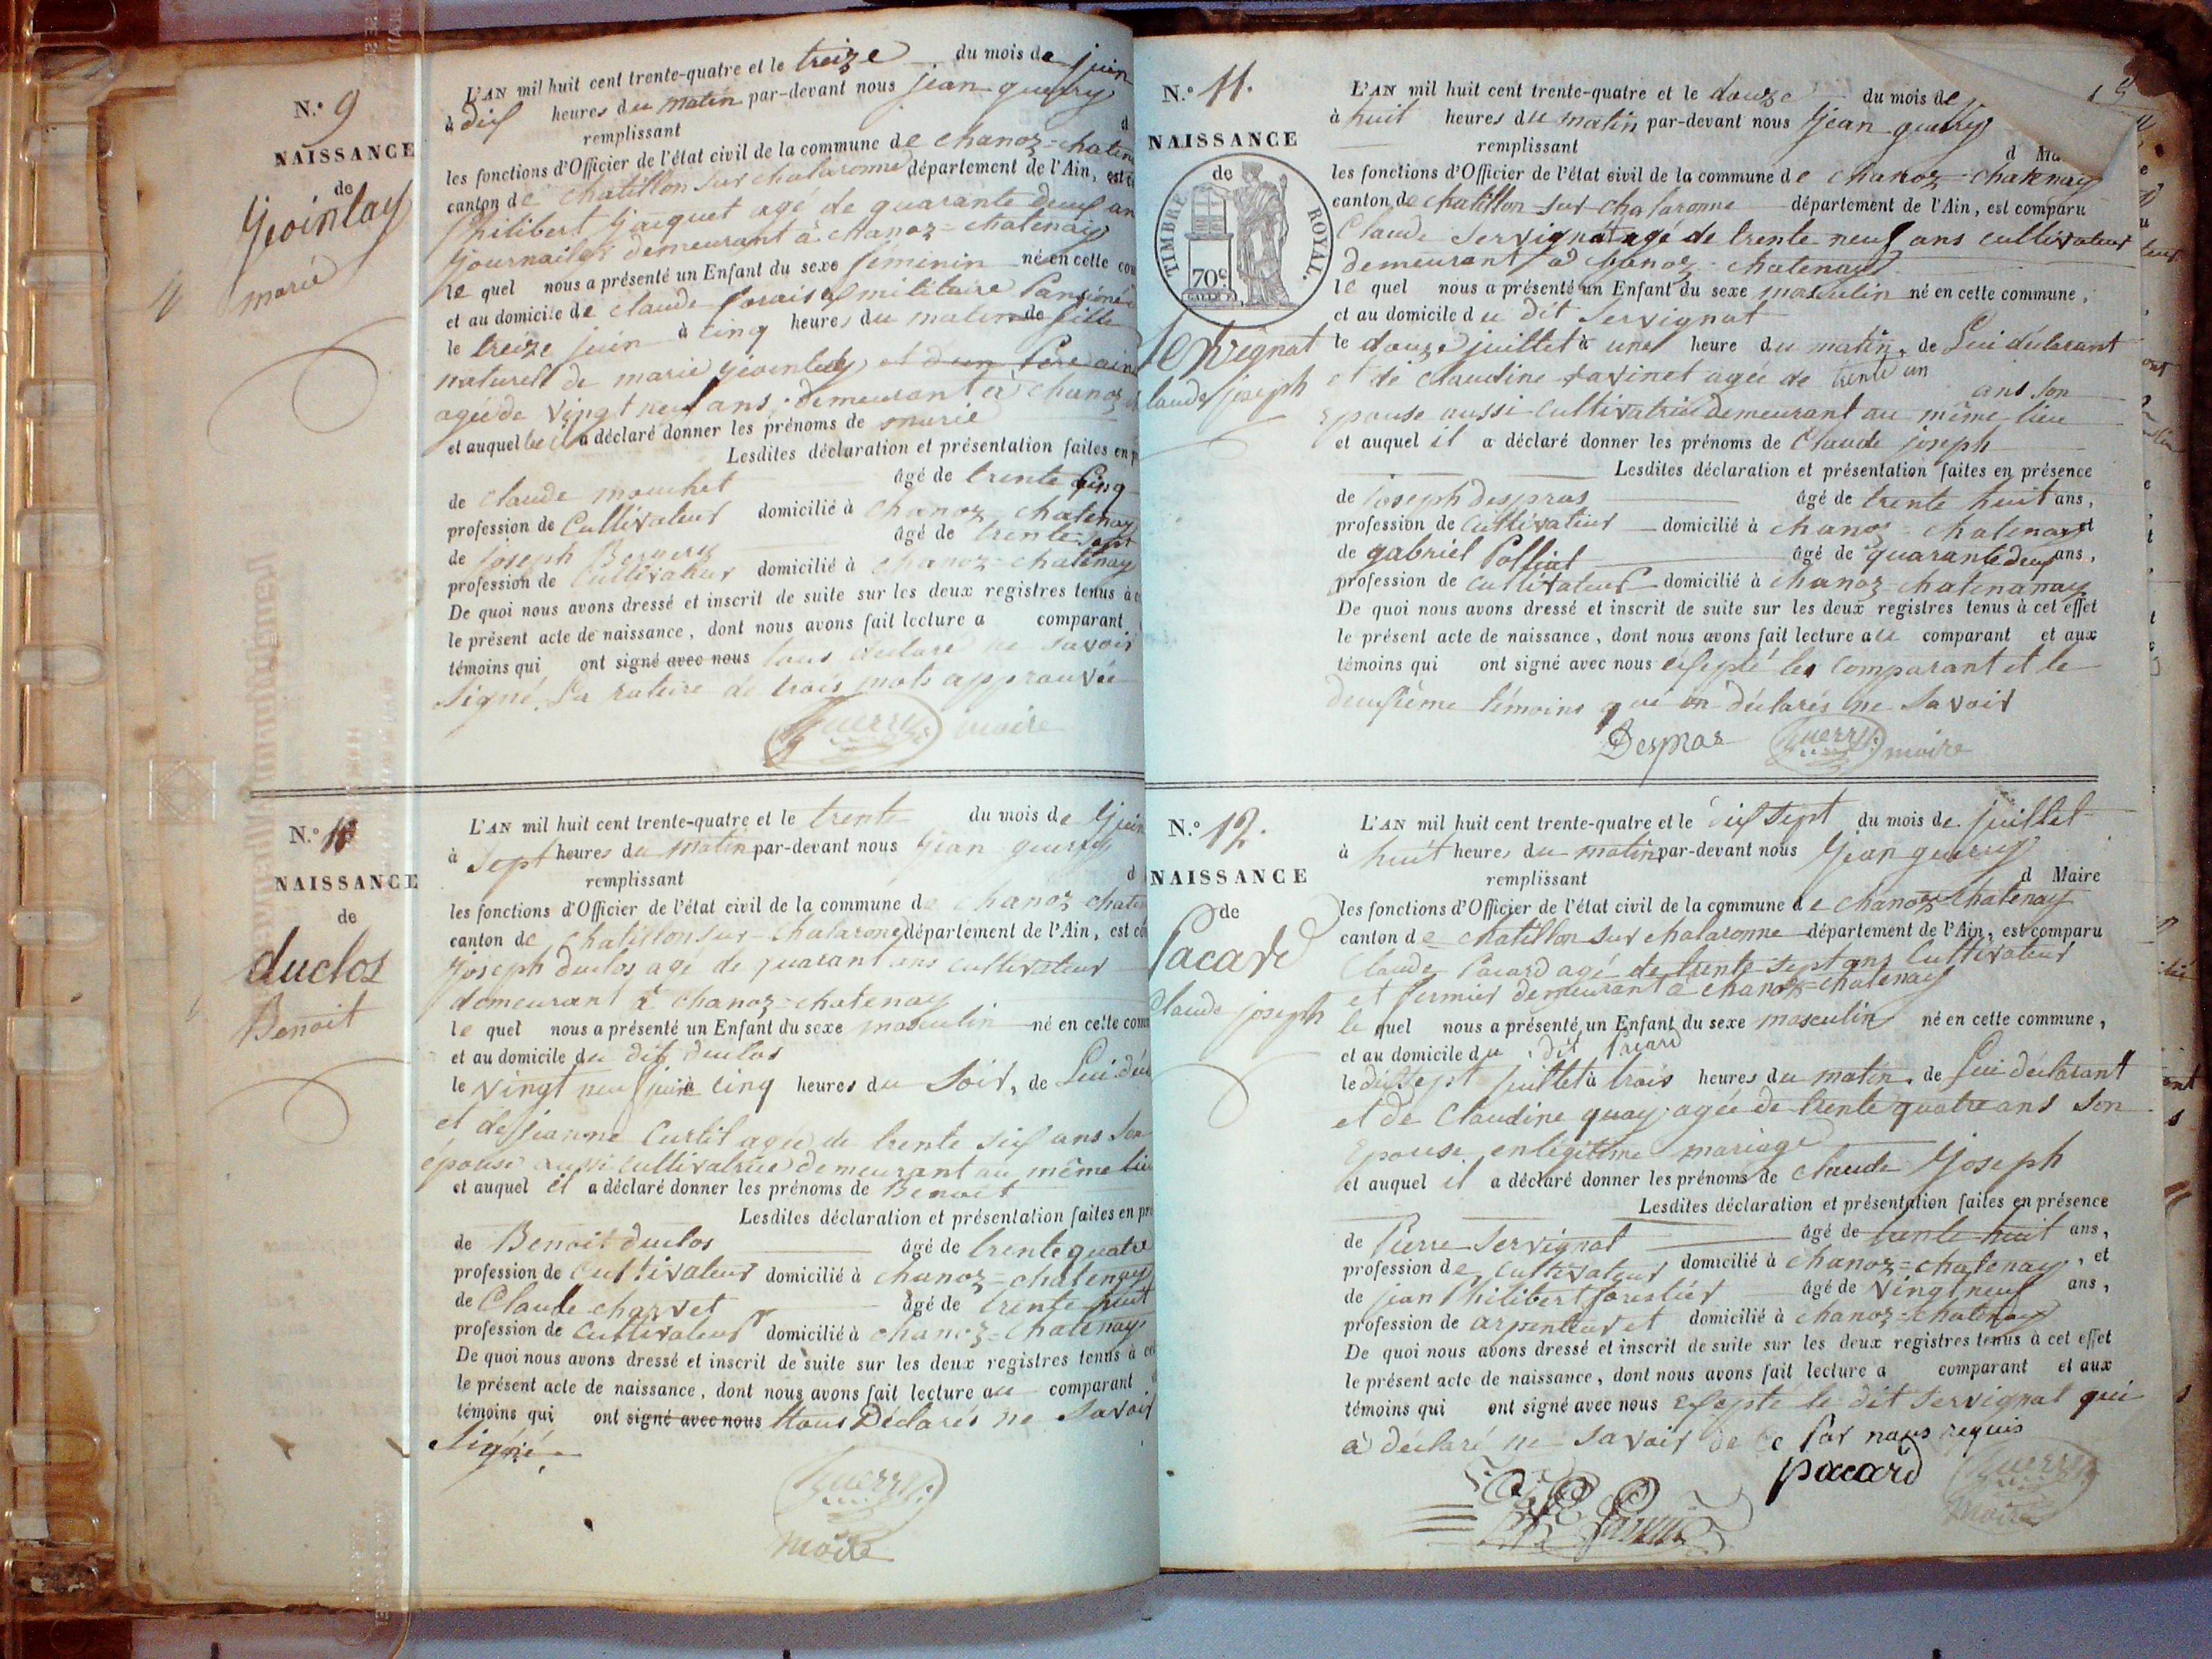 N.° 9
NAISSANCE
de
marie
L'AN mil huit cent trente-quatre et le treize du mois de juin
à dix heures du matin par-devant nous jean guerry
remplissant d
les fonctions d'Officier de l'état civil de la commune de chanoz=chaten
canton de chatillon sur chalaronne département de l'Ain, est c
Philibert Jaquet agé de quarante deux an
Journailer demeurant à chanoz=chatenay
le quel nous a présenté un Enfant du sexe feminin né en cette com
et au domicile de claude militaire
le treize juin à cinq heures du matin de fille
naturell de marie et d'un Pere
agée de vingt neuf ans demeurant a chanoz
et auquel a déclaré donner les prénoms de marie
Lesdites déclaration et présentation faites en p
de claude mouchet âgé de trente Cinq
profession de Cultivateur domicilié à chanoz chatenay
de joseph Bergery âgé de trente sept
profession de Cultivateur domicilié à chanoz=chatenay
De quoi nous avons dressé et inscrit de suite sur les deux registres tenus à c
le présent acte de naissance, dont nous avons fait lecture a comparant
témoins qui ont signé avec nous tous declare ne savoir
signé. La rature de trois mots approuvée
Guerry maire
N.° 10
NAISSANCE
de
duclos
Benoit
L'AN mil huit cent trente-quatre et le trente du mois de Juin
à Sept heures du matin par-devant nous jean guerry
remplissant d
les fonctions d'Officier de l'état civil de la commune de chanoz chaten
canton de chatillon sur=chalarone département de l'Ain, est co
joseph duclos agé de quarant ans cultivateur
demeurant à chanoz=chatenay
le quel nous a présenté un Enfant du sexe masculin né en cette comm
et au domicile du dit duclos
le vingt neuf juin à cinq heures du Soir, de Lui déc
et de jeanne Curtil agée de trente six ans Son
épouse aussi cultivatrice demeurant au même lieu
et auquel il a déclaré donner les prénoms de Benoit
Lesdites déclaration et présentation faites en pré
de Benoit duclos âgé de trente quatre
profession de Cultivateur domicilié à chanoz=chatenay
de Claude charvet âgé de trente huit
profession de Cultivateur domicilié à chanoz=chatenay
De quoi nous avons dressé et inscrit de suite sur les deux registres tenus à ce
le présent acte de naissance, dont nous avons fait lecture au comparant
témoins qui ont signé avec nous tous Déclarés ne Savoir
Signé.
Guerry
maire
N.° 11.
NAISSANCE
de
TIMBRE ROYAL.
70c
Servignat
claude joseph
L'AN mil huit cent trente-quatre et le douze du mois de
à huit heures du matin par-devant nous jean guerry
remplissant d Ma
les fonctions d'Officier de l'état civil de la commune de chanoz=chatenay
canton de chatillon-sur-chalaronne département de l'Ain, est comparu
Claude Servignat agé de trente neuf ans cultivateur
demeurant à chanoz=chatenay
le quel nous a présenté un Enfant du sexe masculin né en cette commune,
et au domicile du dit Servignat
le douze juillet à une heure du matin, de Lui déclarant
et de claudine ravinet agée de trente un ans son
Epouse aussi cultivatrice demeurant au même lieu
et auquel il a déclaré donner les prénoms de Claude joseph
Lesdites déclaration et présentation faites en présence
de joseph despras âgé de trente huit ans,
profession de cultivateur domicilié à chanoz=chatenay et
de gabriel Polliat âgé de quarante deux ans,
profession de cultivateur domicilié à chanoz=chatenanay
De quoi nous avons dressé et inscrit de suite sur les deux registres tenus à cet effet
le présent acte de naissance, dont nous avons fait lecture au comparant et aux
témoins qui ont signé avec nous exsepté les comparant et le
deuxsième témoins qui on déclarés ne Savoir
Despras Guerry maire
N.° 12.
NAISSANCE
de
Pacard
Claude joseph
L'AN mil huit cent trente-quatre et le dix Sept du mois de juillet
à huit heures du matin par-devant nous Jean guerry
remplissant d Maire
les fonctions d'Officier de l'état civil de la commune de chanoz=chatenay
canton de chatillon sur chalaronne département de l'Ain, est comparu
Claude Pacard agé de trente Sept ans Cultivateur
et fermier demeurant à chanoz=chatenay
le quel nous a présenté un Enfant du sexe masculin né en cette commune,
et au domicile du dit Pacard
le dix Sept juillet à trois heures du matin, de Lui déclarant
et de Claudine quay agée de trente quatre ans Son
Epouse en légitime mariage
et auquel il a déclaré donner les prénoms de claude Joseph
Lesdites déclaration et présentation faites en présence
de Pierre Servignat âgé de trente huit ans,
profession de cultivateur domicilié à chanoz=chatenay, et
de jean Philibert forestier âgé de vingt neuf ans,
profession de arpenteur et domicilié à chanoz=chatenay
De quoi nous avons dressé et inscrit de suite sur les deux registres tenus à cet effet
le présent acte de naissance, dont nous avons fait lecture a comparant et aux
témoins qui ont signé avec nous Exsepté le dit Servignat qui
à déclaré ne Savoir de ce Par nous requis
pacard Guerry
maire